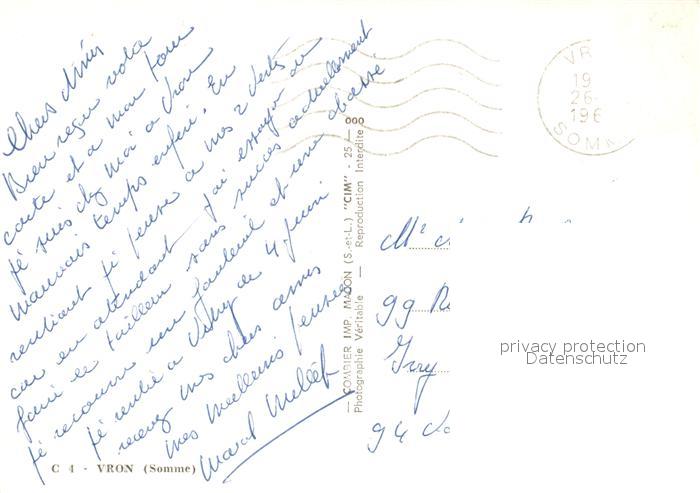 Chers Amis
Bien reçu votre
carte et a mon tour
je suis chez moi a Vron
mauvais temps enfin. En
rentrant je pense a mes 2 verts
car en attendant j'ai essayé de
faire le tailleur sans succès actuellement
je recouvre un fauteuil et une
je rentre a Vitry le 4 juin
recevez mes chers amis
mes meilleures pensées
Marcel
C 4 - VRON (Somme)
COMBIER IMP. MACON (S.-et-L.) "CIM" - 25 - 000
Photographie Véritable - Reproduction Interdite
VR
19
26-
196
SOMM
99 R
Ivry
94
privacy protection
Datenschutz